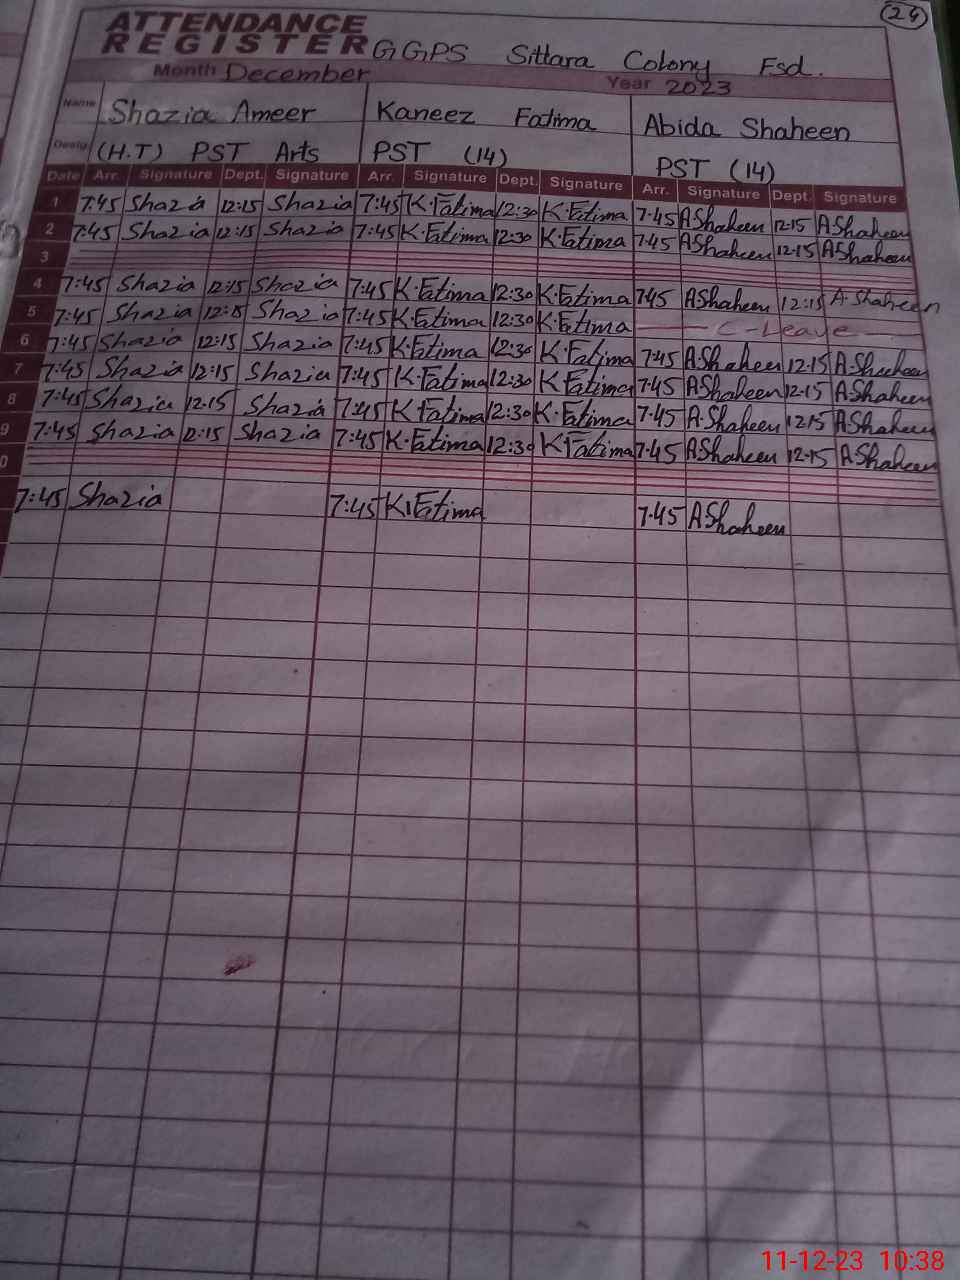 24
ATTENDANCE
REGISTER GGPS Sittara Colony Fsd.
Month December Year 2023
Name Shazia Ameer Kaneez Fatima Abida Shaheen
Desig (H.T) PST Arts PST (14) PST (14)
Date Arr. Signature Dept. Signature Arr. Signature Dept. Signature Arr. Signature Dept. Signature
1 7:45 Shazia 12:15 Shazia 7:45 K.Fatima 12:30 K.Fatima 7:45 AShaheen 12:15 AShaheen
2 7:45 Shazia 12:15 Shazia 7:45 K.Fatima 12:30 K.Fatima 7:45 AShaheen 12:15 AShaheen
3
4 7:45 Shazia 12:15 Shazia 7:45 K.Fatima 12:30 K.Fatima 7:45 AShaheen 12:15 A.Shaheen
5 7:45 Shazia 12:15 Shazia 7:45 K.Fatima 12:30 K.Fatima C-Leave
6 7:45 Shazia 12:15 Shazia 7:45 K.Fatima 12:30 K.Fatima 7:45 A.Shaheen 12:15 A.Shaheen
7 7:45 Shazia 12:15 Shazia 7:45 K.Fatima 12:30 K.Fatima 7:45 A.Shaheen 12:15 A.Shaheen
8 7:45 Shazia 12:15 Shazia 7:45 K Fatima 12:30 K.Fatima 7:45 A.Shaheen 12:15 A.Shaheen
9 7:45 Shazia 12:15 Shazia 7:45 K.Fatima 12:30 K Fatima 7:45 AShaheen 12:15 AShaheen
0
7:45 Shazia 7:45 K.Fatima 7:45 AShaheen
11-12-23 10:38